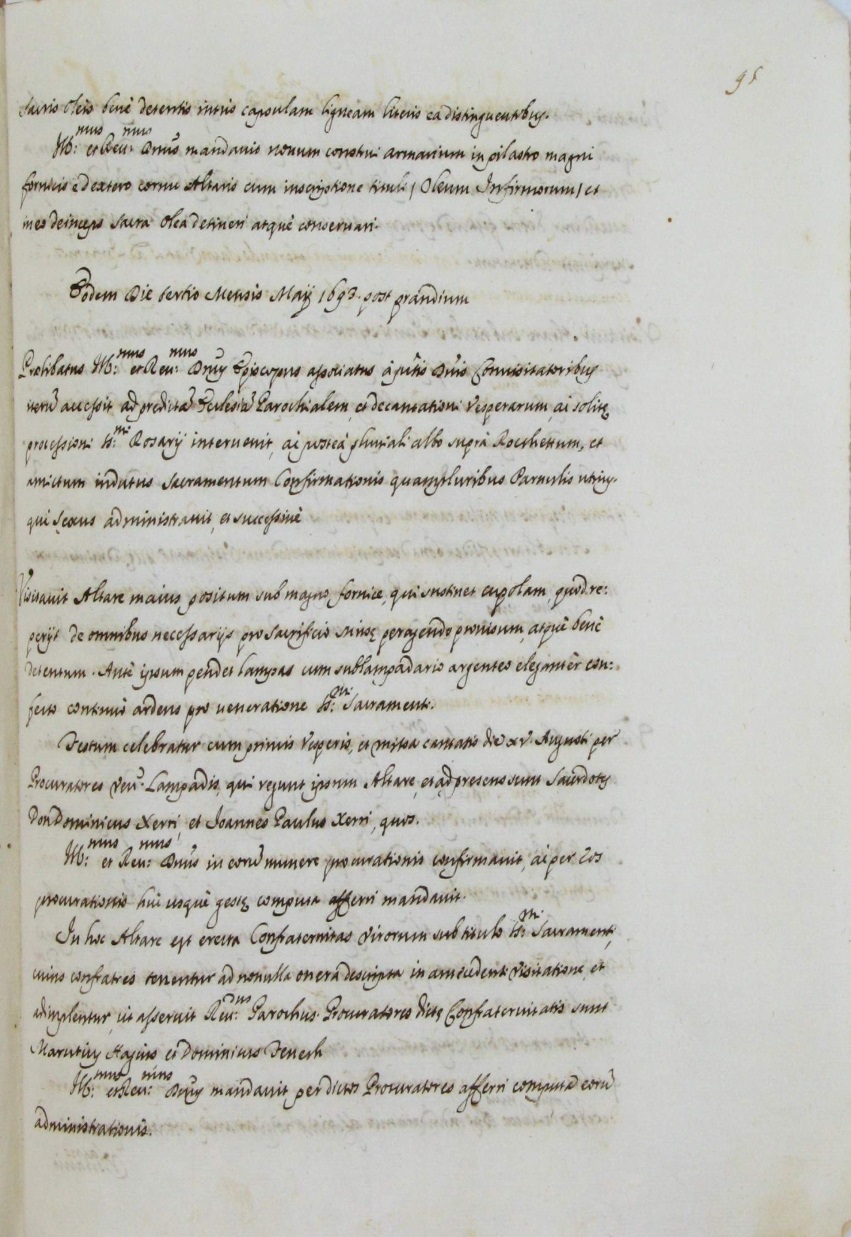 95
sacris oleis benè detentis intùs capsulam ligneam literis ea distinguentibus.
Ill:mus et Reu:mus Dnus mandauit nouum construi armarium in pilastro magni
fornicis è dextero cornu Altaris cum inscriptione tituli / Oleum Infirmorum / et
in eo deinceps sacra olea detineri atquè conseruari.
Eodem Die tertio Mensis Maij 1693. post prandium
Prælibatus Ill:mus et Reu:mus Dnus Episcopus associatus à p.tis Dnis Conuisitatoribus
iterũ accessit ad predictã Ecclesiã Parochialem, et decantationi Vesperarum, ac solitę
processioni SS:mi Rosarij interuenit, ac posteà pluuiali albo suprà Rocchettum, et
amictum indutus Sacramentum Confirmationis quampluribus Paruulis utrius-
què sexus administrauit, et successiuè
Visitauit Altare maius positum sub magno fornice, qui sustinet cupolam, quod re:
perijt de omnibus necessarijs pro Sacrificio missę peragendo prouisum, atquè benè
detentum. Antè ipsum pendet lampas cum sublampadario argenteo elegantèr con:
fecto continuò ardens pro ueneratione SS:mi Sacramenti.
Festum celebratur cum primis Vesperis, et missa cantata die xv. Augusti per
Procuratores Ven: Lampadis, qui regunt ipsum Altare, et ad presens sunt Sacerdotes
Don Dominicus Xerri, et Joannes Paulus Xerri, quos.
Ill:mus et Reu:mus Dnus in eorũ munere procurationis confirmauit, ac per eos
procurationis huc usquè gestę computa afferri mandauit.
In hoc Altare est erecta Confraternitas Virorum sub titulo SS:mi Sacramenti,
cuius confratres tenentur ad nonulla onera descripta in antecedenti Visitatione, et
adimplentur, ut asseruit Reu:dus Parochus. Procuratores dictę Confraternitatis sunt
Marutius Hagius et Dominicus Fenech
Ill:mus et Reu:mus Dnus mandauit per dictos Procuratores afferri computa eorũ
administrationis.